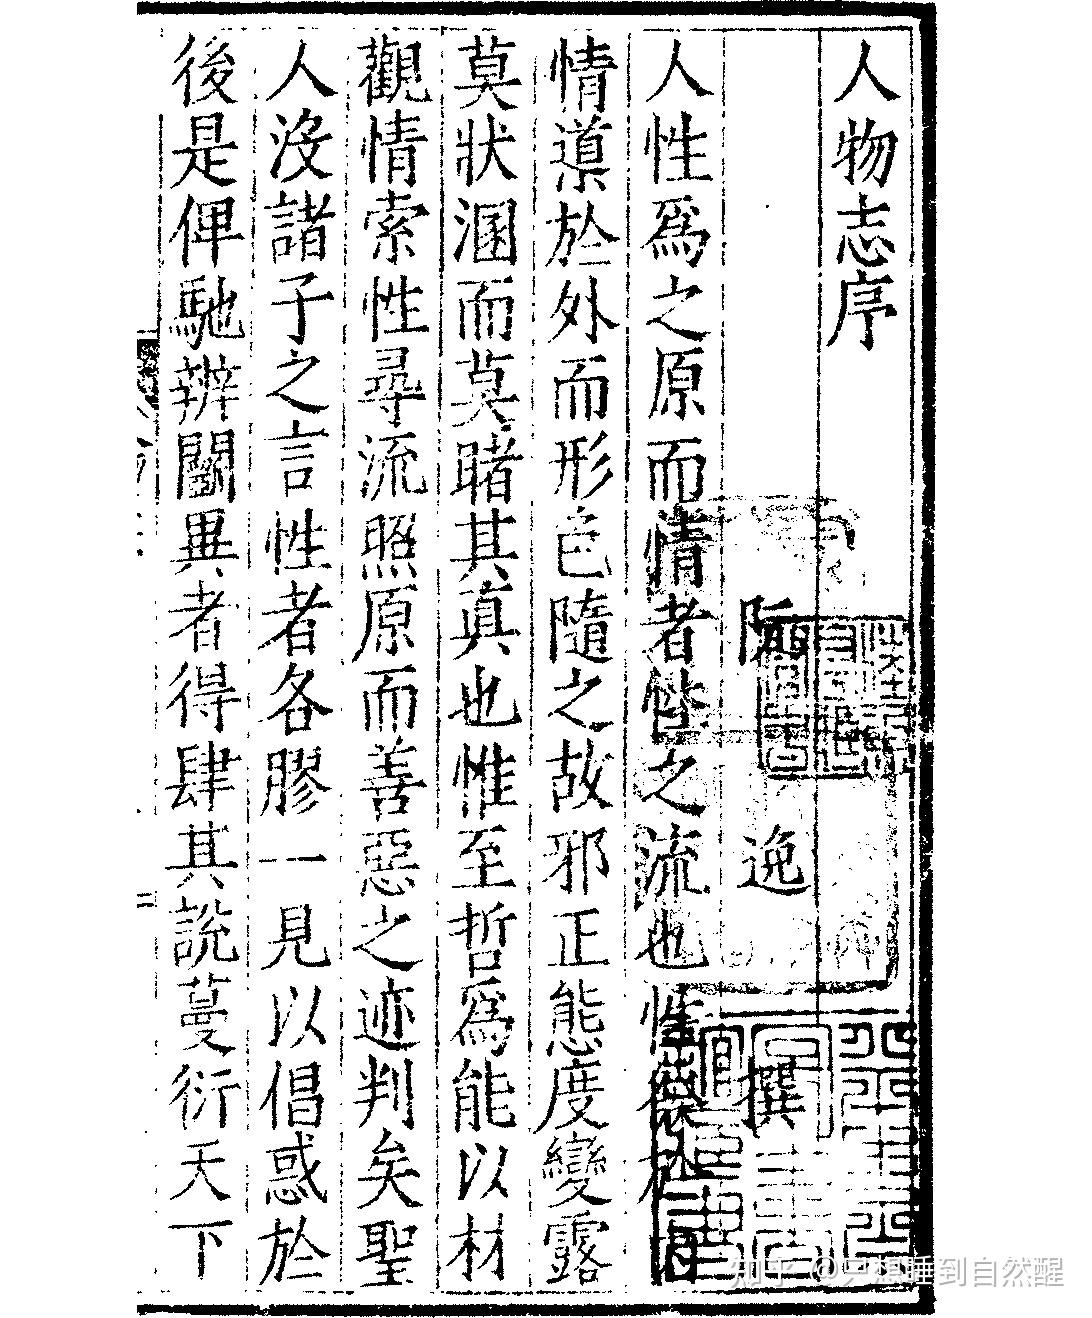 人物志序
阮逸撰
人性爲之原而情者性之流也性發於内
情導於外而形色隨之故邪正態度變露
莫狀溷而莫睹其真也惟至哲爲能以材
觀情索性尋流照原而善惡之迹判矣聖
人没諸子之言性者各膠一見以倡惑於
後是俾馳辨鬭異者得肆其說蔓衍天下
知乎 @只想睡到自然醒